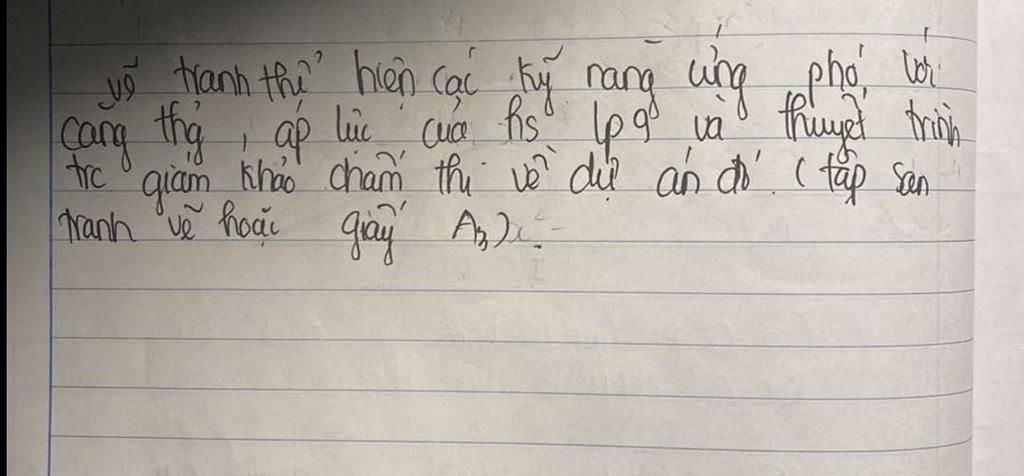 vẽ tranh thể hiện các kỹ năng ứng phó với
căng thg, áp lực của hs lp 9 và thuyết trình
trc giám khảo chấm thi về dự án đó. (tập san
tranh vẽ hoặc giấy A3)